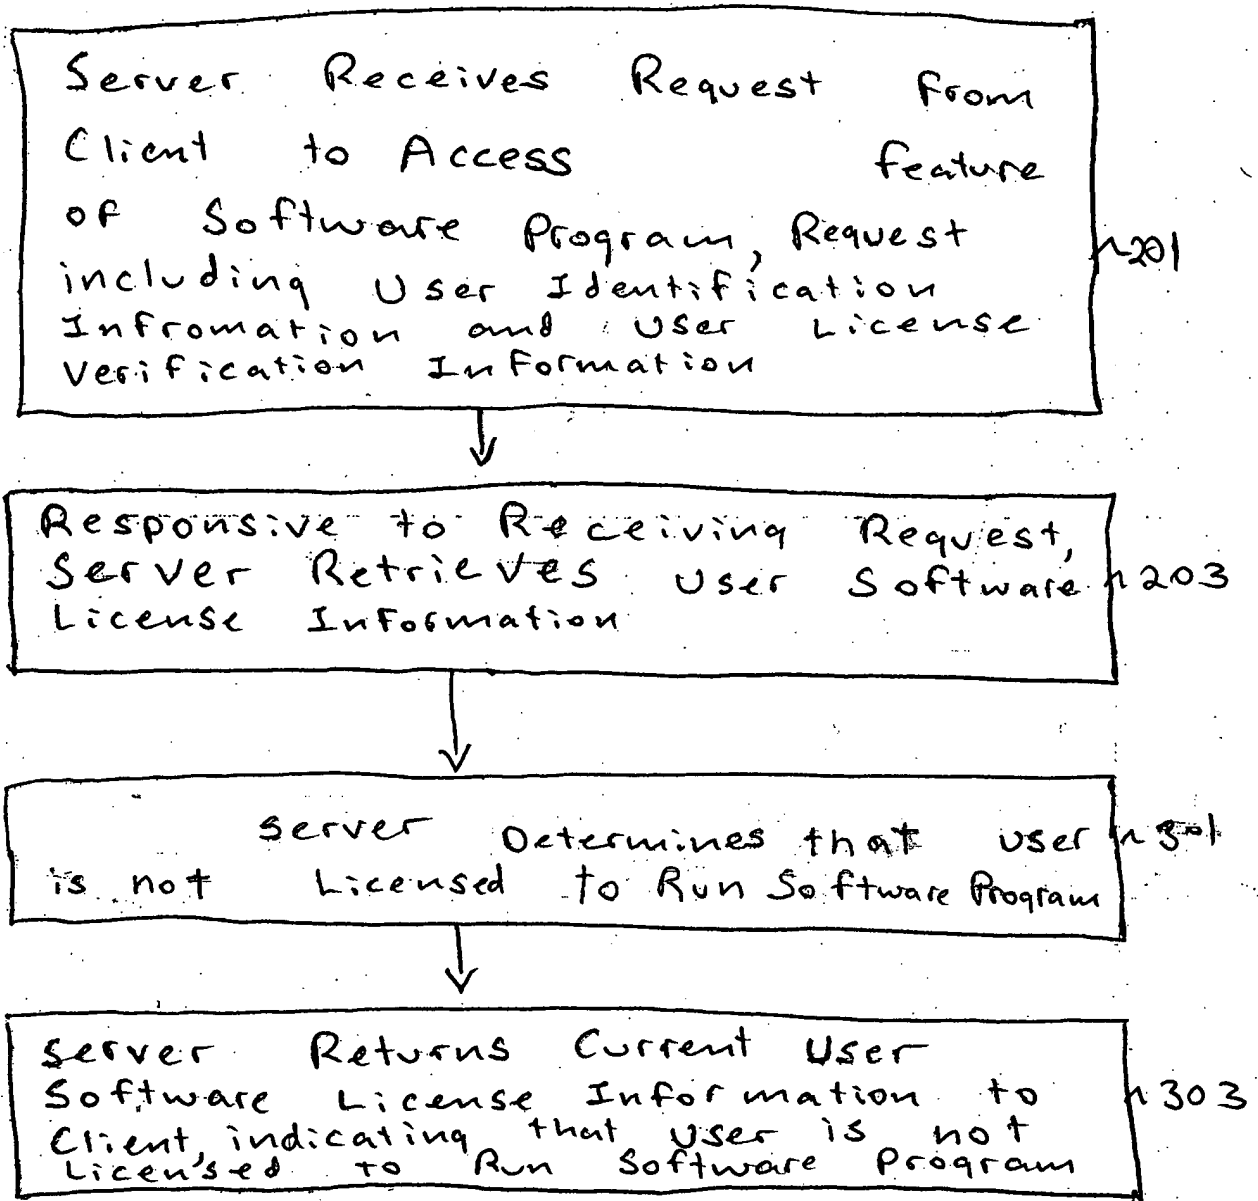 Server Receives Request From
Client to Access feature
of Software Program, Request
including User Identification
Infromation and User License
Verification Information
201
Responsive to Receiving Request,
Server Retrieves User Software
License Information
203
Server Determines that user
is not Licensed to Run Software Program
301
Server Returns Current User
Software License Information to
Client, indicating that user is not
Licensed to Run Software Program
303